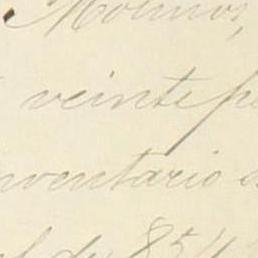 Molinos,
veinte p
nventario
de 854